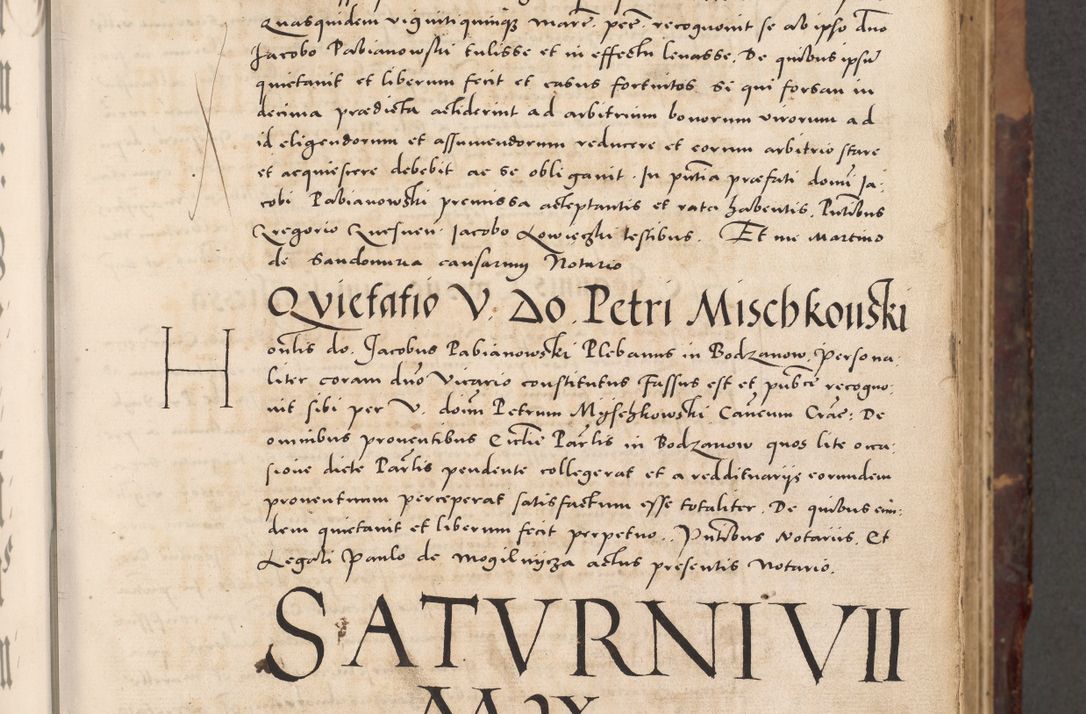 Quasquidem vigintiquinque marc. pec. recognovit se ab ipso dno
Jacobo Pabianowski tulisse et in effectu levasse. De quibus ipsu
quietavit et liberum fecit et casus fortuitos si qui forsan in
decima prædicta acciderint ad arbitrium bonorum virorum ad
id eligendorum et assumendorum reducere et eorum arbitrio stare
et acquiescere debebit ac se obligavit. In pntia præfati domi Ja-
cobi Pabianowski premissa acceptantis et rata habentis. Pntibus
Gregorio Jacobo testibus. Et me Martino
de Sandomiria causarum Notario
Quietatio V. Do. Petri Mischkouski
Honlis do. Jacobus Pabianowski Plebanus in Bodzanow, persona-
liter coram dno Vicario constitutus fassus est et publce recogno-
vit sibi per V. doim Petrum Myschkowski Cancum Crac: De
omnibus proventibus Ecclie Parlis in Bodzanow quos lite occa-
sione dicte Parlis pendente collegerat et a reddituariis eorundem
proventuum perceperat satisfactum esse totaliter. De quibus eun-
dem quietavit et liberum fecit perpetuo. Pntibus Notariis. Et
Legati Paulo de Mogilnycza actus presentis Notario.
SATVRNI VII